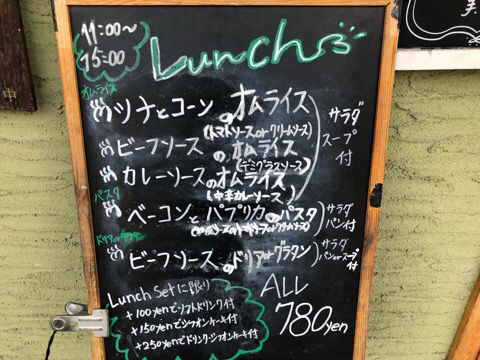 11:00〜
15:00
Lunch
オムライス
ツナとコーンのオムライス
(トマトソースorクリームソース)
ビーフソースのオムライス
(デミグラスソース)
カレーソースのオムライス
(中辛カレーソース)
サラダ
スープ
付
パスタ
ベーコンとパプリカのパスタ
サラダ
パン付
ドリアorグラタン
ビーフソースのドリアorグラタン
サラダ
パンorスープ
付
Lunch Setに限り
+100yenでソフトドリンク付
+150yenでシフォンケーキ付
+250yenでドリンク・シフォンケーキ付
ALL
780yen